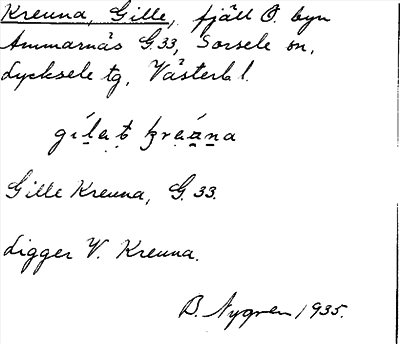 Kreuna, Gille, fjäll Ö. byn
Ammarnäs G.33, Sorsele sn,
Lycksele tg, Västerb l.
gílet kreána
Gille Kreuna, G. 33.
Ligger V. Kreuna.
B. Nygren 1935.